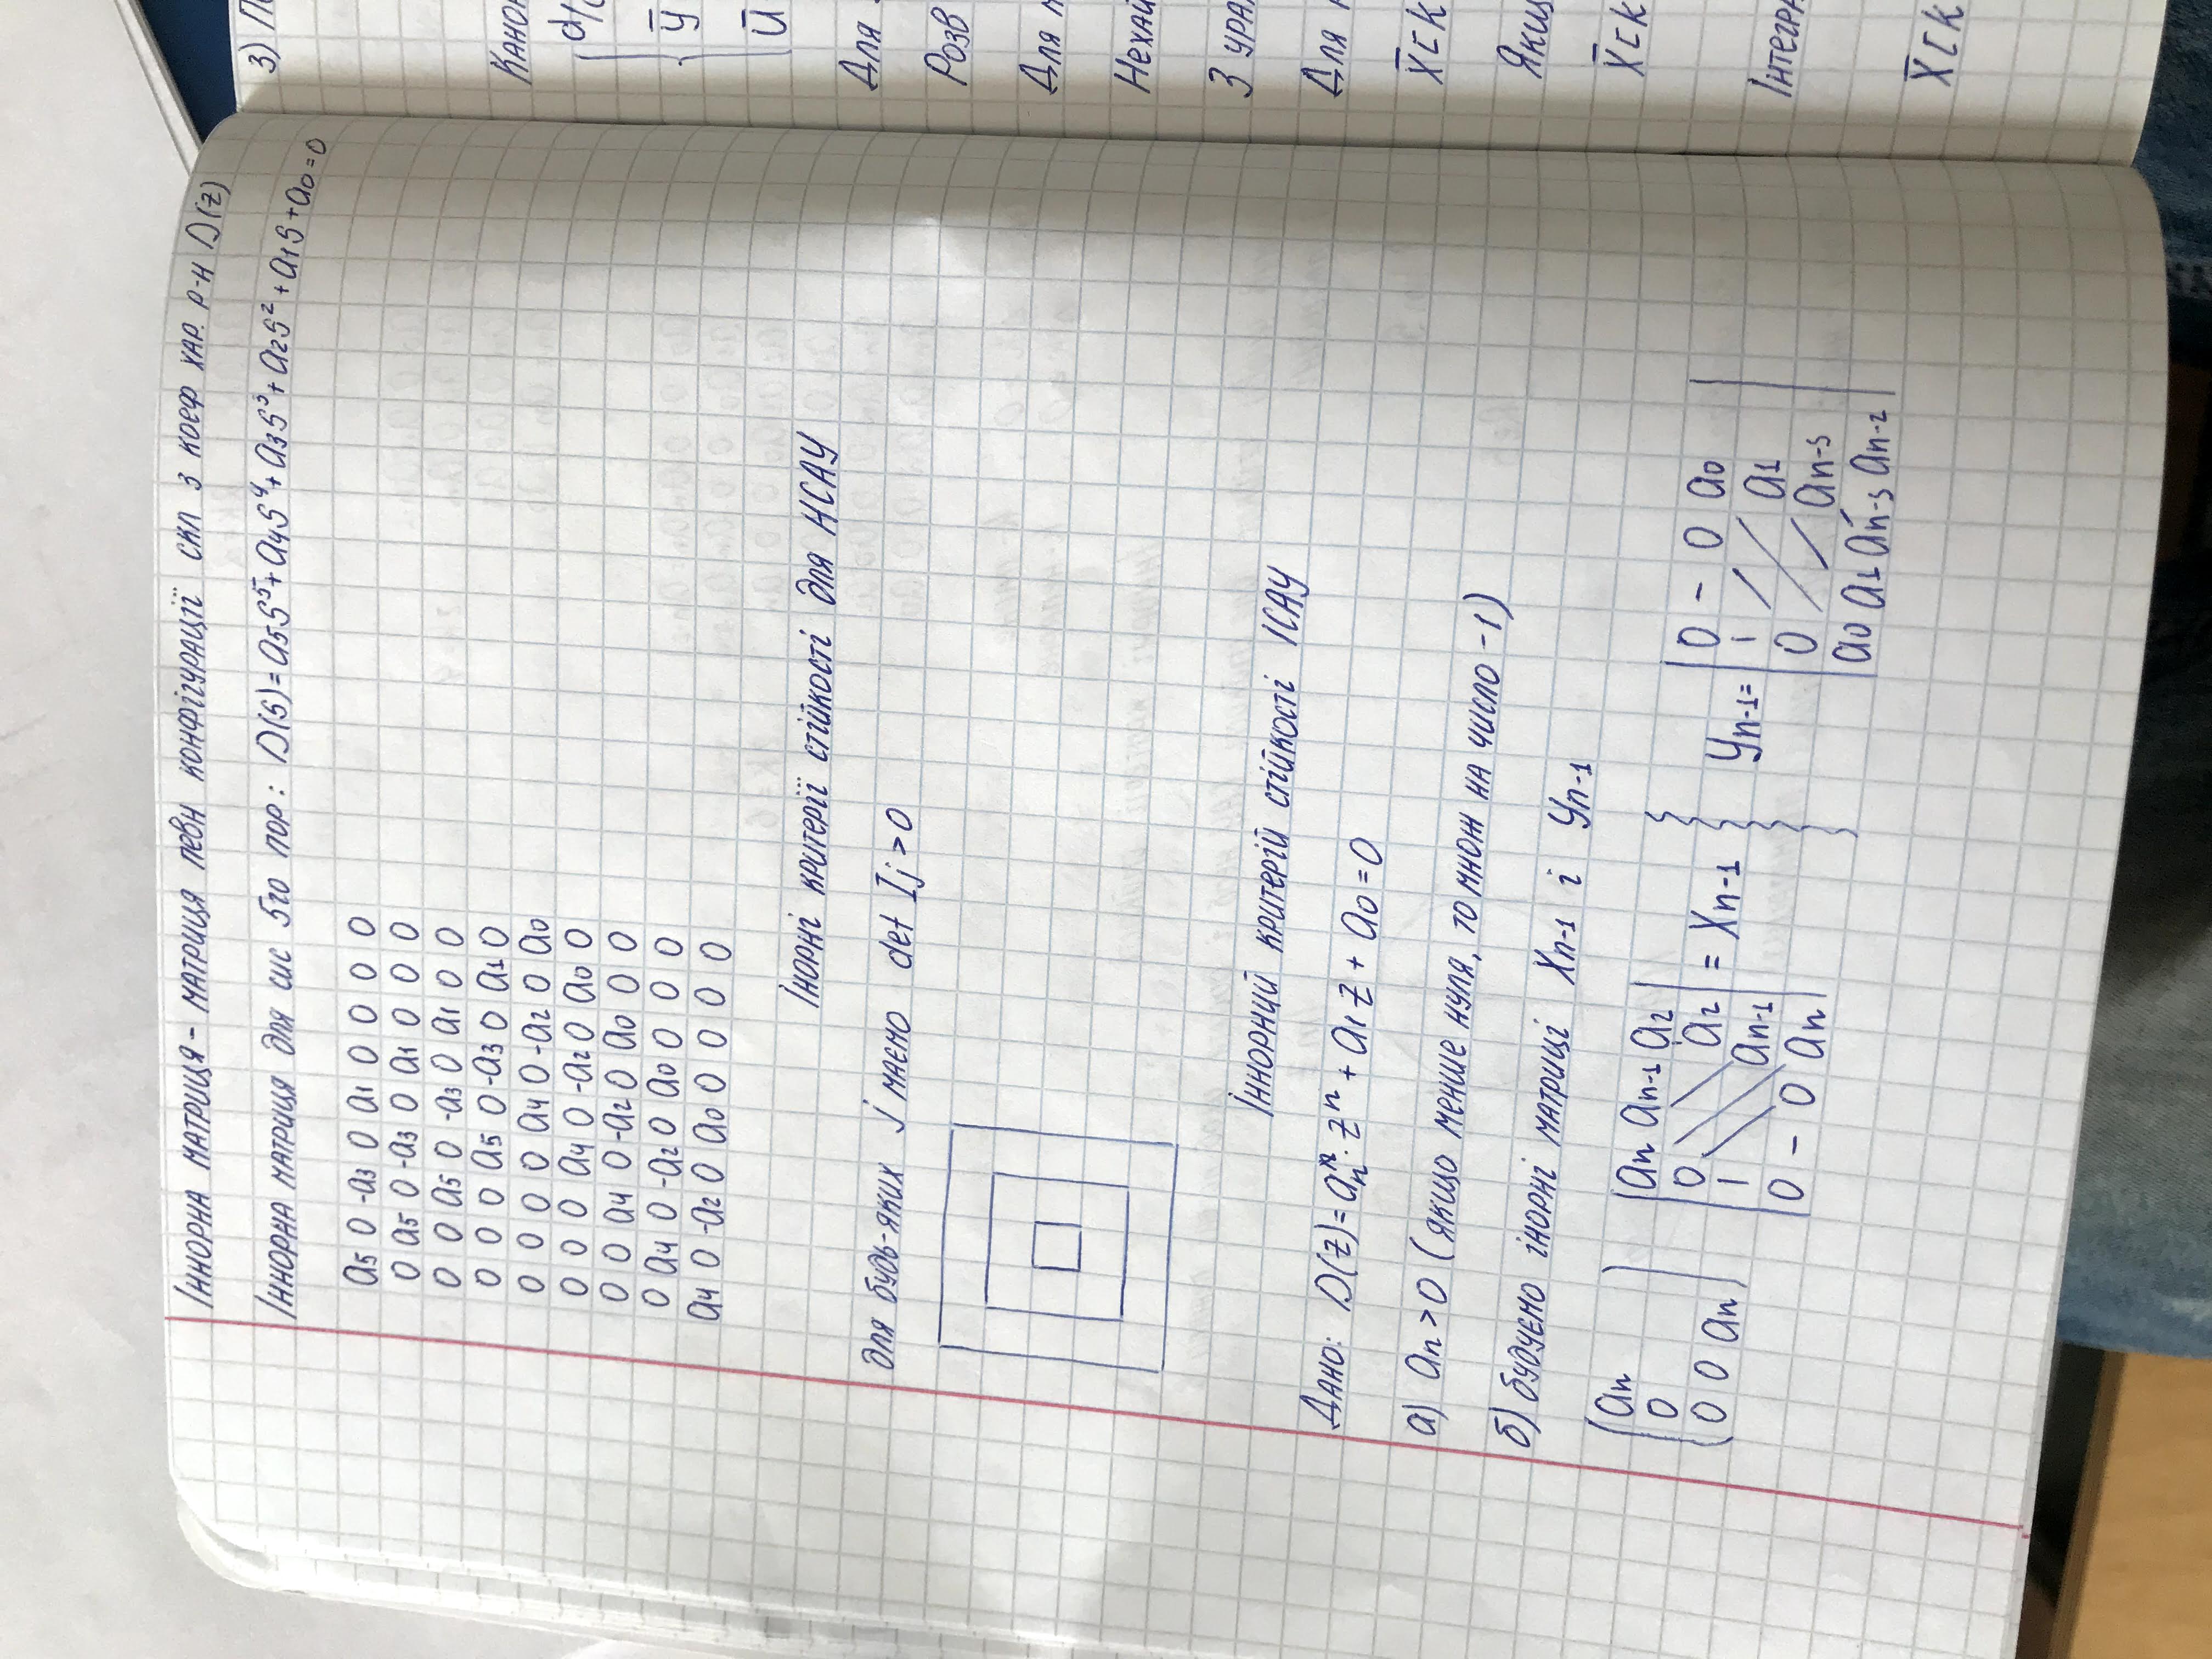 Іннорна матриця - матриця певн конфігурації скл з коеф хар. р-н D(z)
Іннорна матриця для сис 5го пор: D(s)=a5s⁵+a4s⁴+a3s³+a2s²+a1s+a0=0
a5 0 -a3 0 a1 0 0 0 0
0 a5 0 -a3 0 a1 0 0 0
0 0 a5 0 -a3 0 a1 0 0
0 0 0 a5 0 -a3 0 a1 0
0 0 0 0 a4 0 -a2 0 a0
0 0 0 a4 0 -a2 0 a0 0
0 0 a4 0 -a2 0 a0 0 0
0 a4 0 -a2 0 a0 0 0 0
a4 0 -a2 0 a0 0 0 0 0
Інорні критерії стійкості для НСАУ
для будь-яких j маємо det Ij>0
Іннорний критерій стійкості ІСАУ
Дано: D(z)=aₙⁿ·zⁿ+a1z+a0=0
а) an>0 (якщо менше нуля, то множ на число -1)
б) будуємо інорні матриці Xn-1 і Yn-1
an
0
0 0 an
an an-1 a2
0 a2
| an-1
0 – 0 an
= Xn-1
Yn-1=
0 – 0 a0
| a1
0 an-3
a0 a1 an-3 an-2
3) П
Канон
d/
ȳ
ū
Для
Розв
Для м
Нехай
З ура
Для
X̄[k
Якщ
X̄[k
Інтегра
X̄[k